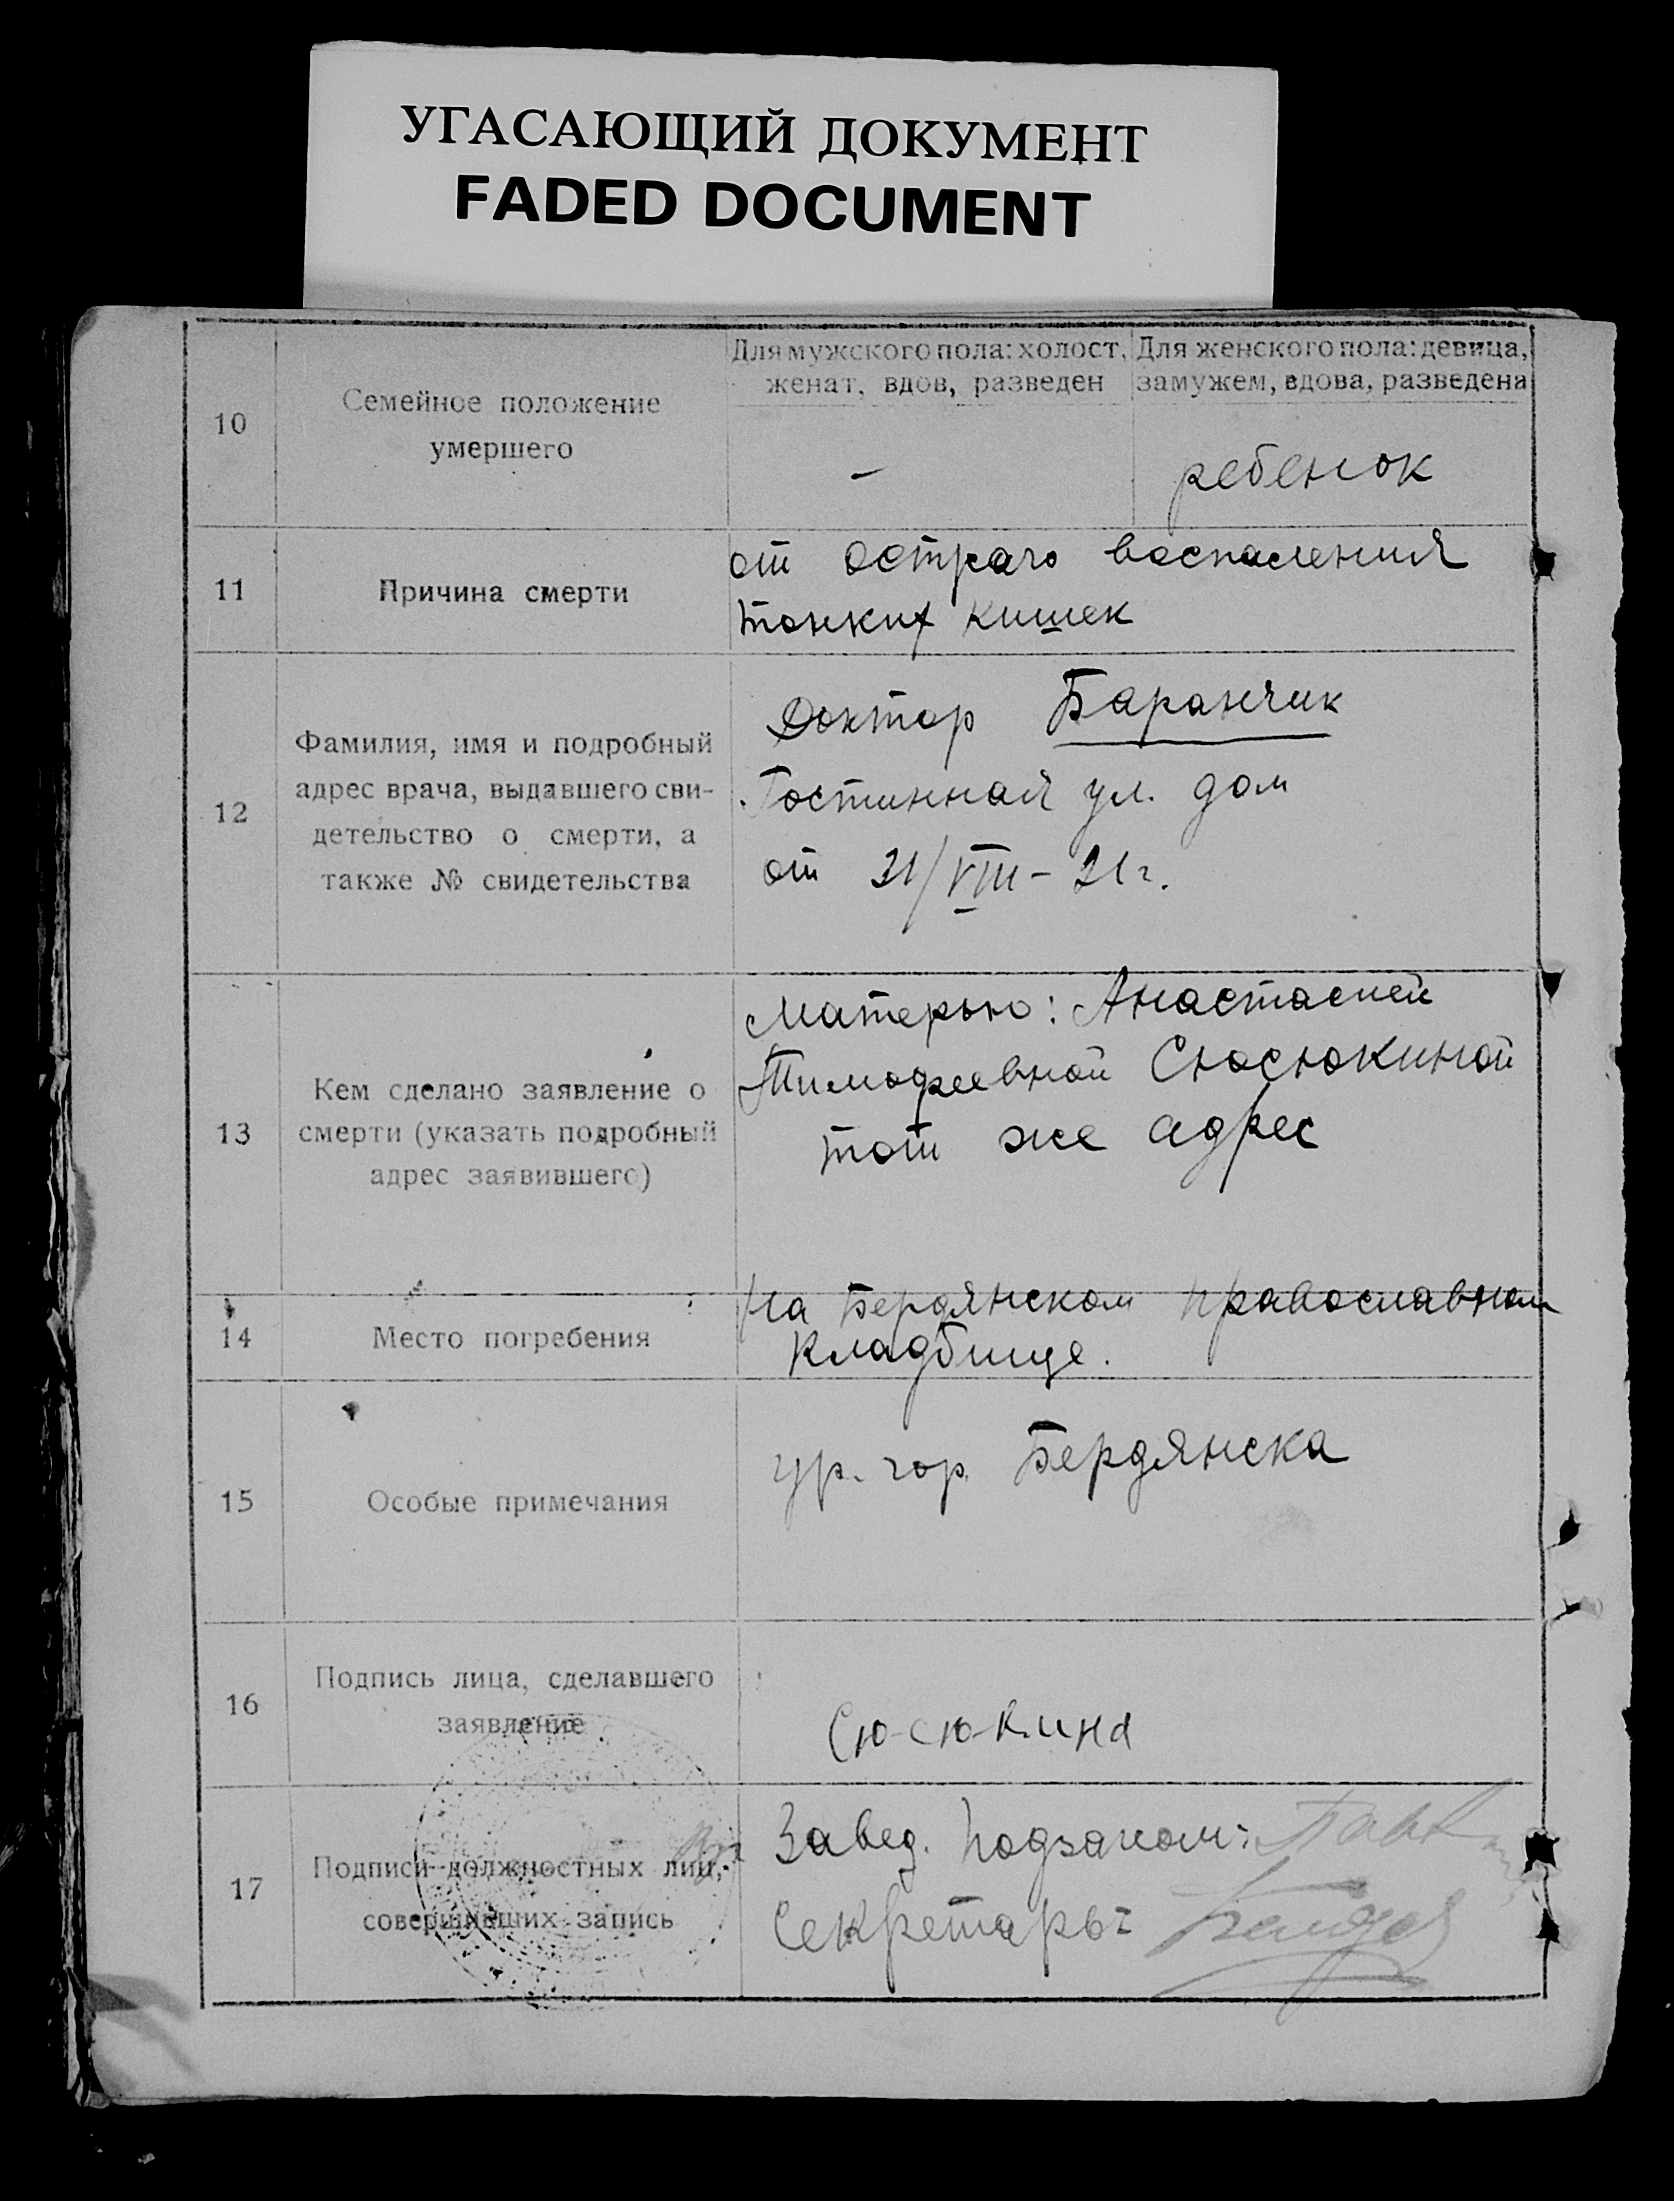 УГАСАЮЩИЙ ДОКУМЕНТ
FADED DOCUMENT
10
Семейное положение
умершего
Для мужского пола: холост,
женат, вдов, разведен
Для женского пола: девица,
замужем, вдова, разведена
—
ребенок
11
Причина смерти
от острого воспаления
тонких кишек
12
Фамилия, имя и подробный
адрес врача, выдавшего сви-
детельство о смерти, а
также № свидетельства
Доктор Баранчик
Гостинная ул. дом
от 21/VIII – 21 г.
13
Кем сделано заявление о
смерти (указать подробный
адрес заявившего)
Матерью: Анастасией
Тимофеевной Сюсюкиной
тот же адрес
14
Место погребения
На Бердянском православном
кладбище.
15
Особые примечания
ур. гор. Бердянска
16
Подпись лица, сделавшего
заявление
Сю-сю-кина
17
Подписи должностных лиц,
совершивших запись
Завед. Подзагсом:
Секретарь: